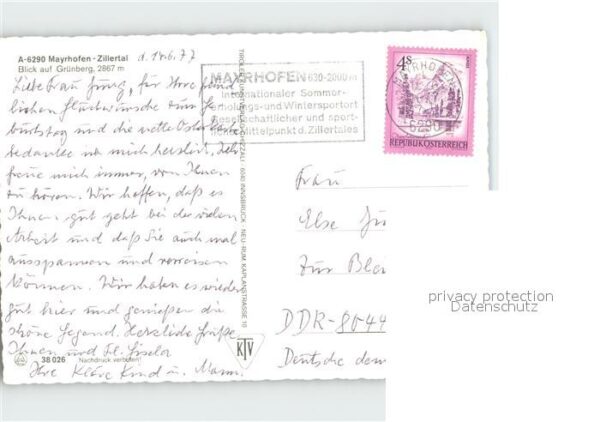 A-6290 Mayrhofen - Zillertal
Blick auf Grünberg, 2867 m
d. 14.6.77
Liebe Frau Jung, für Ihre freund
lichen Glückwünsche zum Ge
burtstag und die nette Osterkarte
bedanke ich mich herzlich. Ich
freue mich immer, von Ihnen
zu hören. Wir hoffen, daß es
Ihnen gut geht bei der vielen
Arbeit und daß Sie auch mal
ausspannen und verreisen
können. Wir haben es wieder
gut hier und genießen die
schöne Gegend. Herzliche Grüße
Ihnen und Frl. Gisela
Ihre Kläre Kind u. Mann.
38 026
Nachdruck verboten!
TIROLER KUNSTVERLAG CHIZZALI · 6040 INNSBRUCK · NEU-RUM, KAPLANSTRASSE 10
KTV
MAYRHOFEN 630-2000 m
Internationaler Sommer-
erholungs- und Wintersportort
Gesellschaftlicher und sport-
licher Mittelpunkt d. Zillertales
4 S
MAYRHOFEN
6290
REPUBLIK ÖSTERREICH
Frau
Else Ju
Zur
DDR-8044
Deutsche dem
privacy protection
Datenschutz